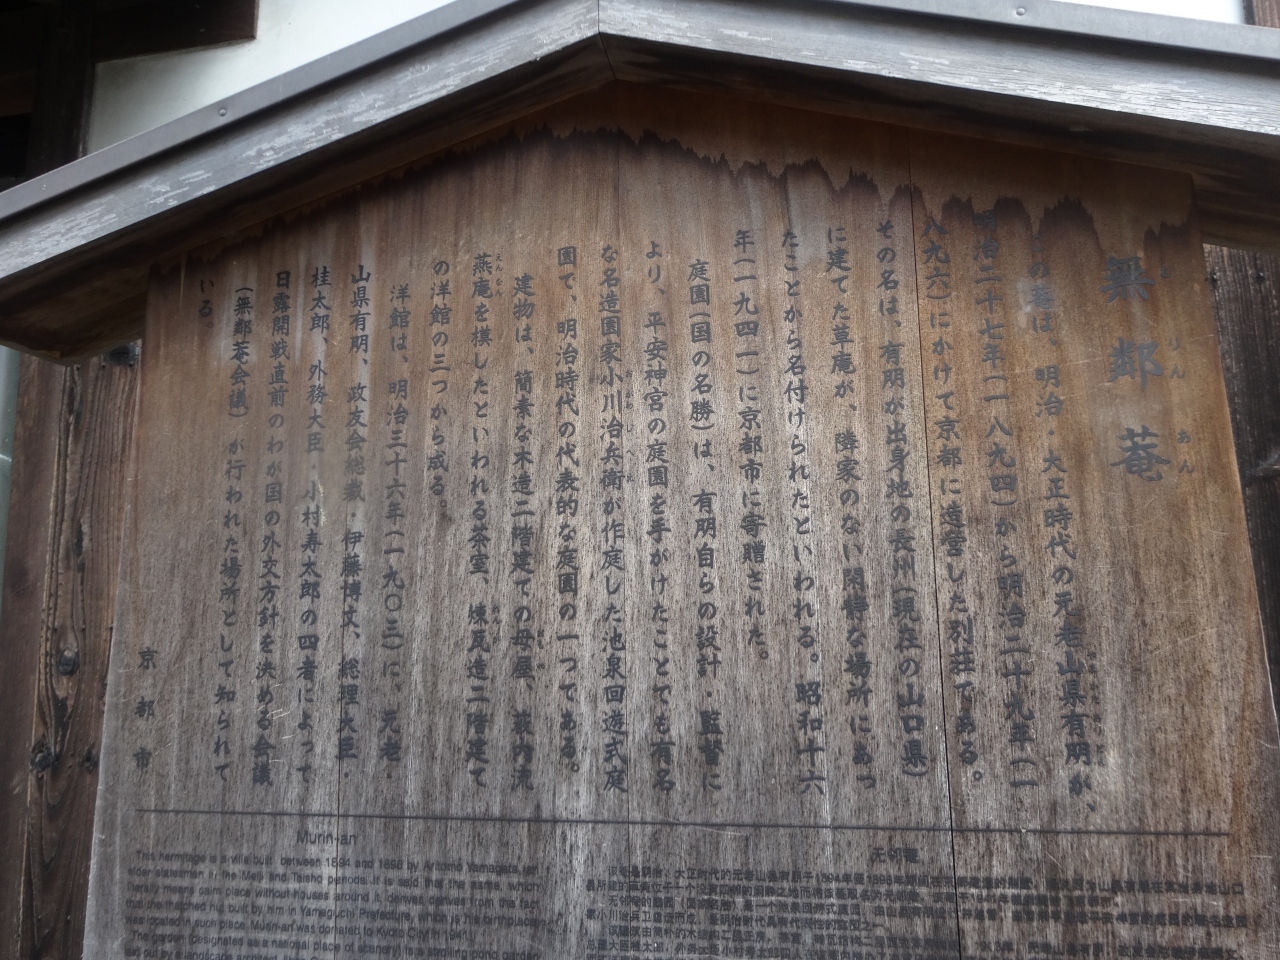 無鄰菴
りん
あん
この菴は、明治・大正時代の元老山県有朋が、
明治二十七年(一八九四)から明治二十九年(一
八九六)にかけて京都に造営した別荘である。
その名は、有朋が出身地の長州(現在の山口県)
に建てた草庵が、隣家のない閑静な場所にあっ
たことから名付けられたといわれる。昭和十六
年(一九四一)に京都市に寄贈された。
庭園(国の名勝)は、有朋自らの設計・監督に
より、平安神宮の庭園を手がけたことでも有名
な名造園家小川治兵衛が作庭した池泉回遊式庭
園で、明治時代の代表的な庭園の一つである。
建物は、簡素な木造二階建ての母屋、薮内流
燕庵を模したといわれる茶室、煉瓦造二階建て
えんなん
の洋館の三つから成る。
洋館は、明治三十六年(一九〇三)に、元老・
山県有朋、政友会総裁・伊藤博文、総理大臣・
桂太郎、外務大臣・小村寿太郎の四者によって
日露開戦直前のわが国の外交方針を決める会議
(無鄰菴会議)が行われた場所として知られて
いる。
京都市
Murin-an
This hermitage is a villa built between 1894 and 1896 by Aritomo Yamagata, an
elder statesman in the Meiji and Taisho periods. It is said that the name, which
literally means calm place without houses around it, derives from the fact
that the thatched hut built by him in Yamaguchi Prefecture, which is his birthplace,
was located in such place. Murin-an was donated to Kyoto City in 1941.
The garden (designated as a national place of scenery) is a strolling pond garden
无邻菴